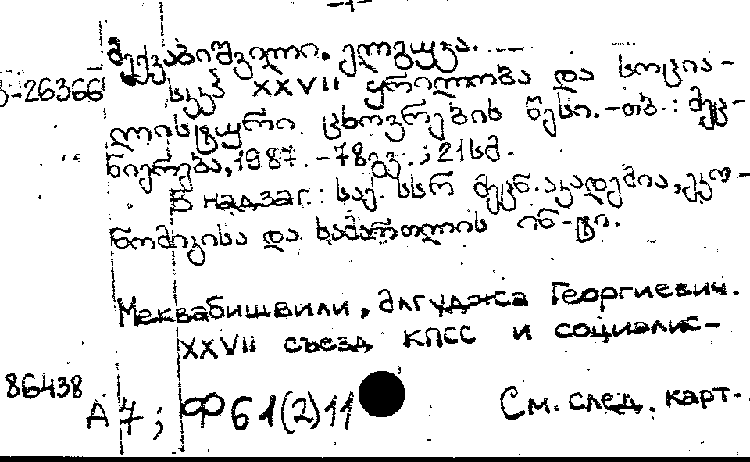 -1-
მექვაბიშვილი, ელგუჯა.
-26366 სკკპ XXVII ყრილობა და სოცია-
ლისტური ცხოვრების წესი.-თბ.: მეც-
ნიერება, 1987.-78გვ.; 21სმ.
В надзаг.: საქ. სსრ მეცნ. აკადემია, ეკო-
ნომიკისა და სამართლის ინ-ტი.
Меквабишвили, Элгуджа Георгиевич.
XXVII съезд КПСС и социалис-
86438
А 7; Ф61(2)11 См. след. карт.